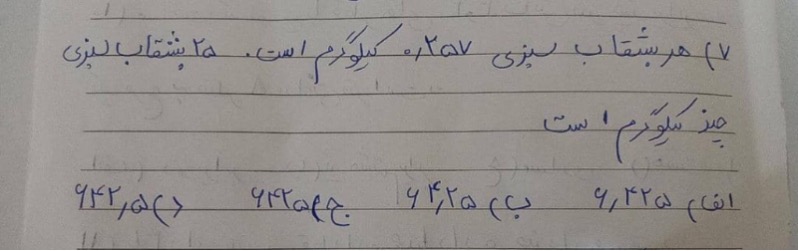 ۷) هر بشقاب سبزی ۰٫۲۵۷ کیلوگرم است. ۲۵ بشقاب سبزی
چند کیلوگرم است
الف) ۶٫۴۲۵ ب) ۶۴٫۲۵ ج) ۶۴۲۵ د) ۶۴۲٫۵